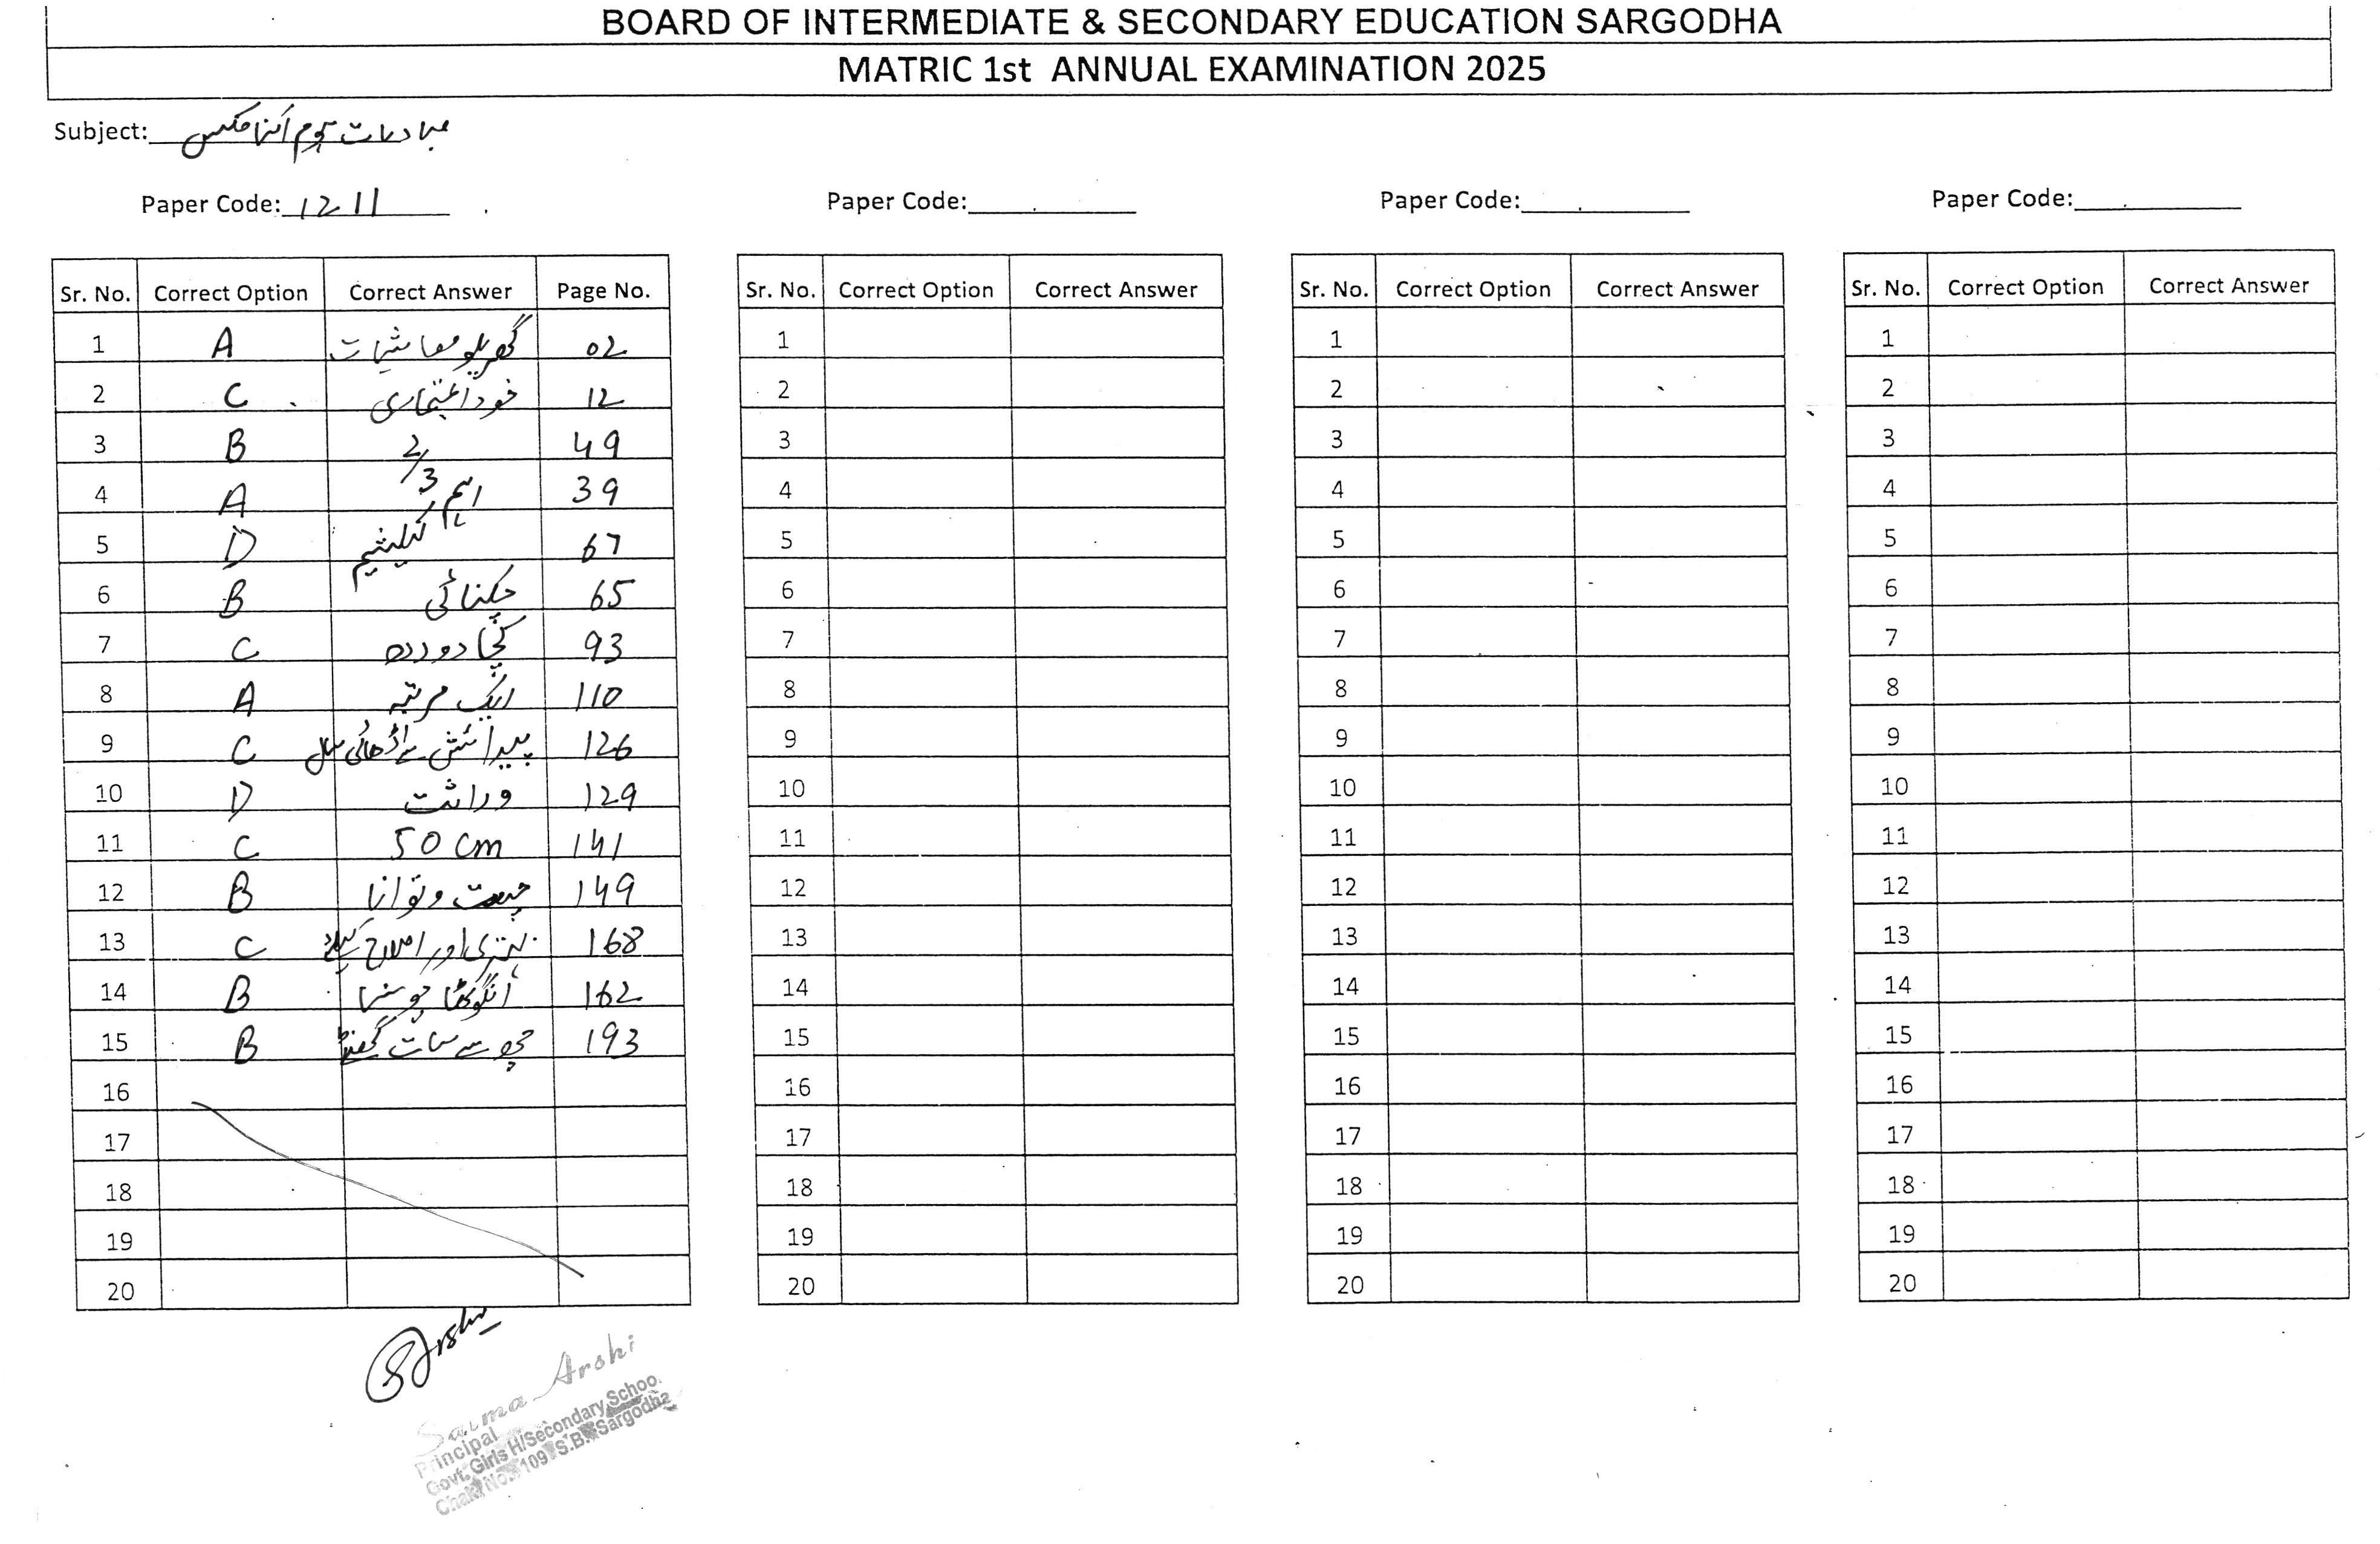 BOARD OF INTERMEDIATE & SECONDARY EDUCATION SARGODHA
MATRIC 1st ANNUAL EXAMINATION 2025
Subject: مبادیات ہوم اکنامکس
Paper Code: 1211
Paper Code:
Paper Code:
Paper Code:
Sr. No. Correct Option Correct Answer Page No.
1 A گھریلو معاشیات 02
2 C خود اعتمادی 12
3 B 2/3 49
4 A اہم 39
5 D کیلشیم 67
6 B چکنائی 65
7 C کچا دودھ 93
8 A ایک مرتبہ 110
9 C پیدائش سے اڑھائی سال 126
10 D وراثت 129
11 C 50 cm 141
12 B چست و توانا 149
13 C بہتری اور اصلاح کیلئے 168
14 B انگوٹھا چوسنا 162
15 B چھ سے سات گھنٹے 193
16
17
18
19
20
Sr. No. Correct Option Correct Answer
1
2
3
4
5
6
7
8
9
10
11
12
13
14
15
16
17
18
19
20
Sr. No. Correct Option Correct Answer
1
2
3
4
5
6
7
8
9
10
11
12
13
14
15
16
17
18
19
20
Sr. No. Correct Option Correct Answer
1
2
3
4
5
6
7
8
9
10
11
12
13
14
15
16
17
18
19
20
Saima Arshi
Principal
Govt. Girls H/Secondary School
Chak No. 109 S.B. Sargodha